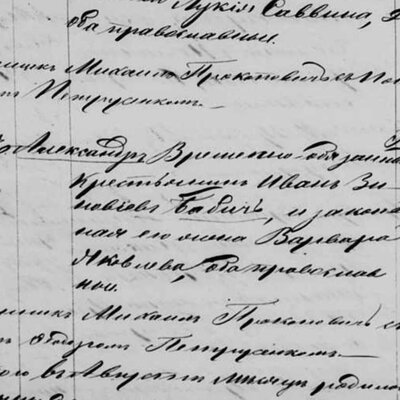 Лукія Саввина,
оба православныи.
Михаилъ Прокоповичъ съ
Петрусенкомъ.
Александръ Временно-обязан
крестьянинъ Иванъ Зи-
новіевъ Бабичъ, и закон
ная его жена Варвара
Яковлева, оба православ
ныи.
Михаилъ Прокоповичъ с
Петрусенкомъ
въ Августъ мѣсяцѣ родило